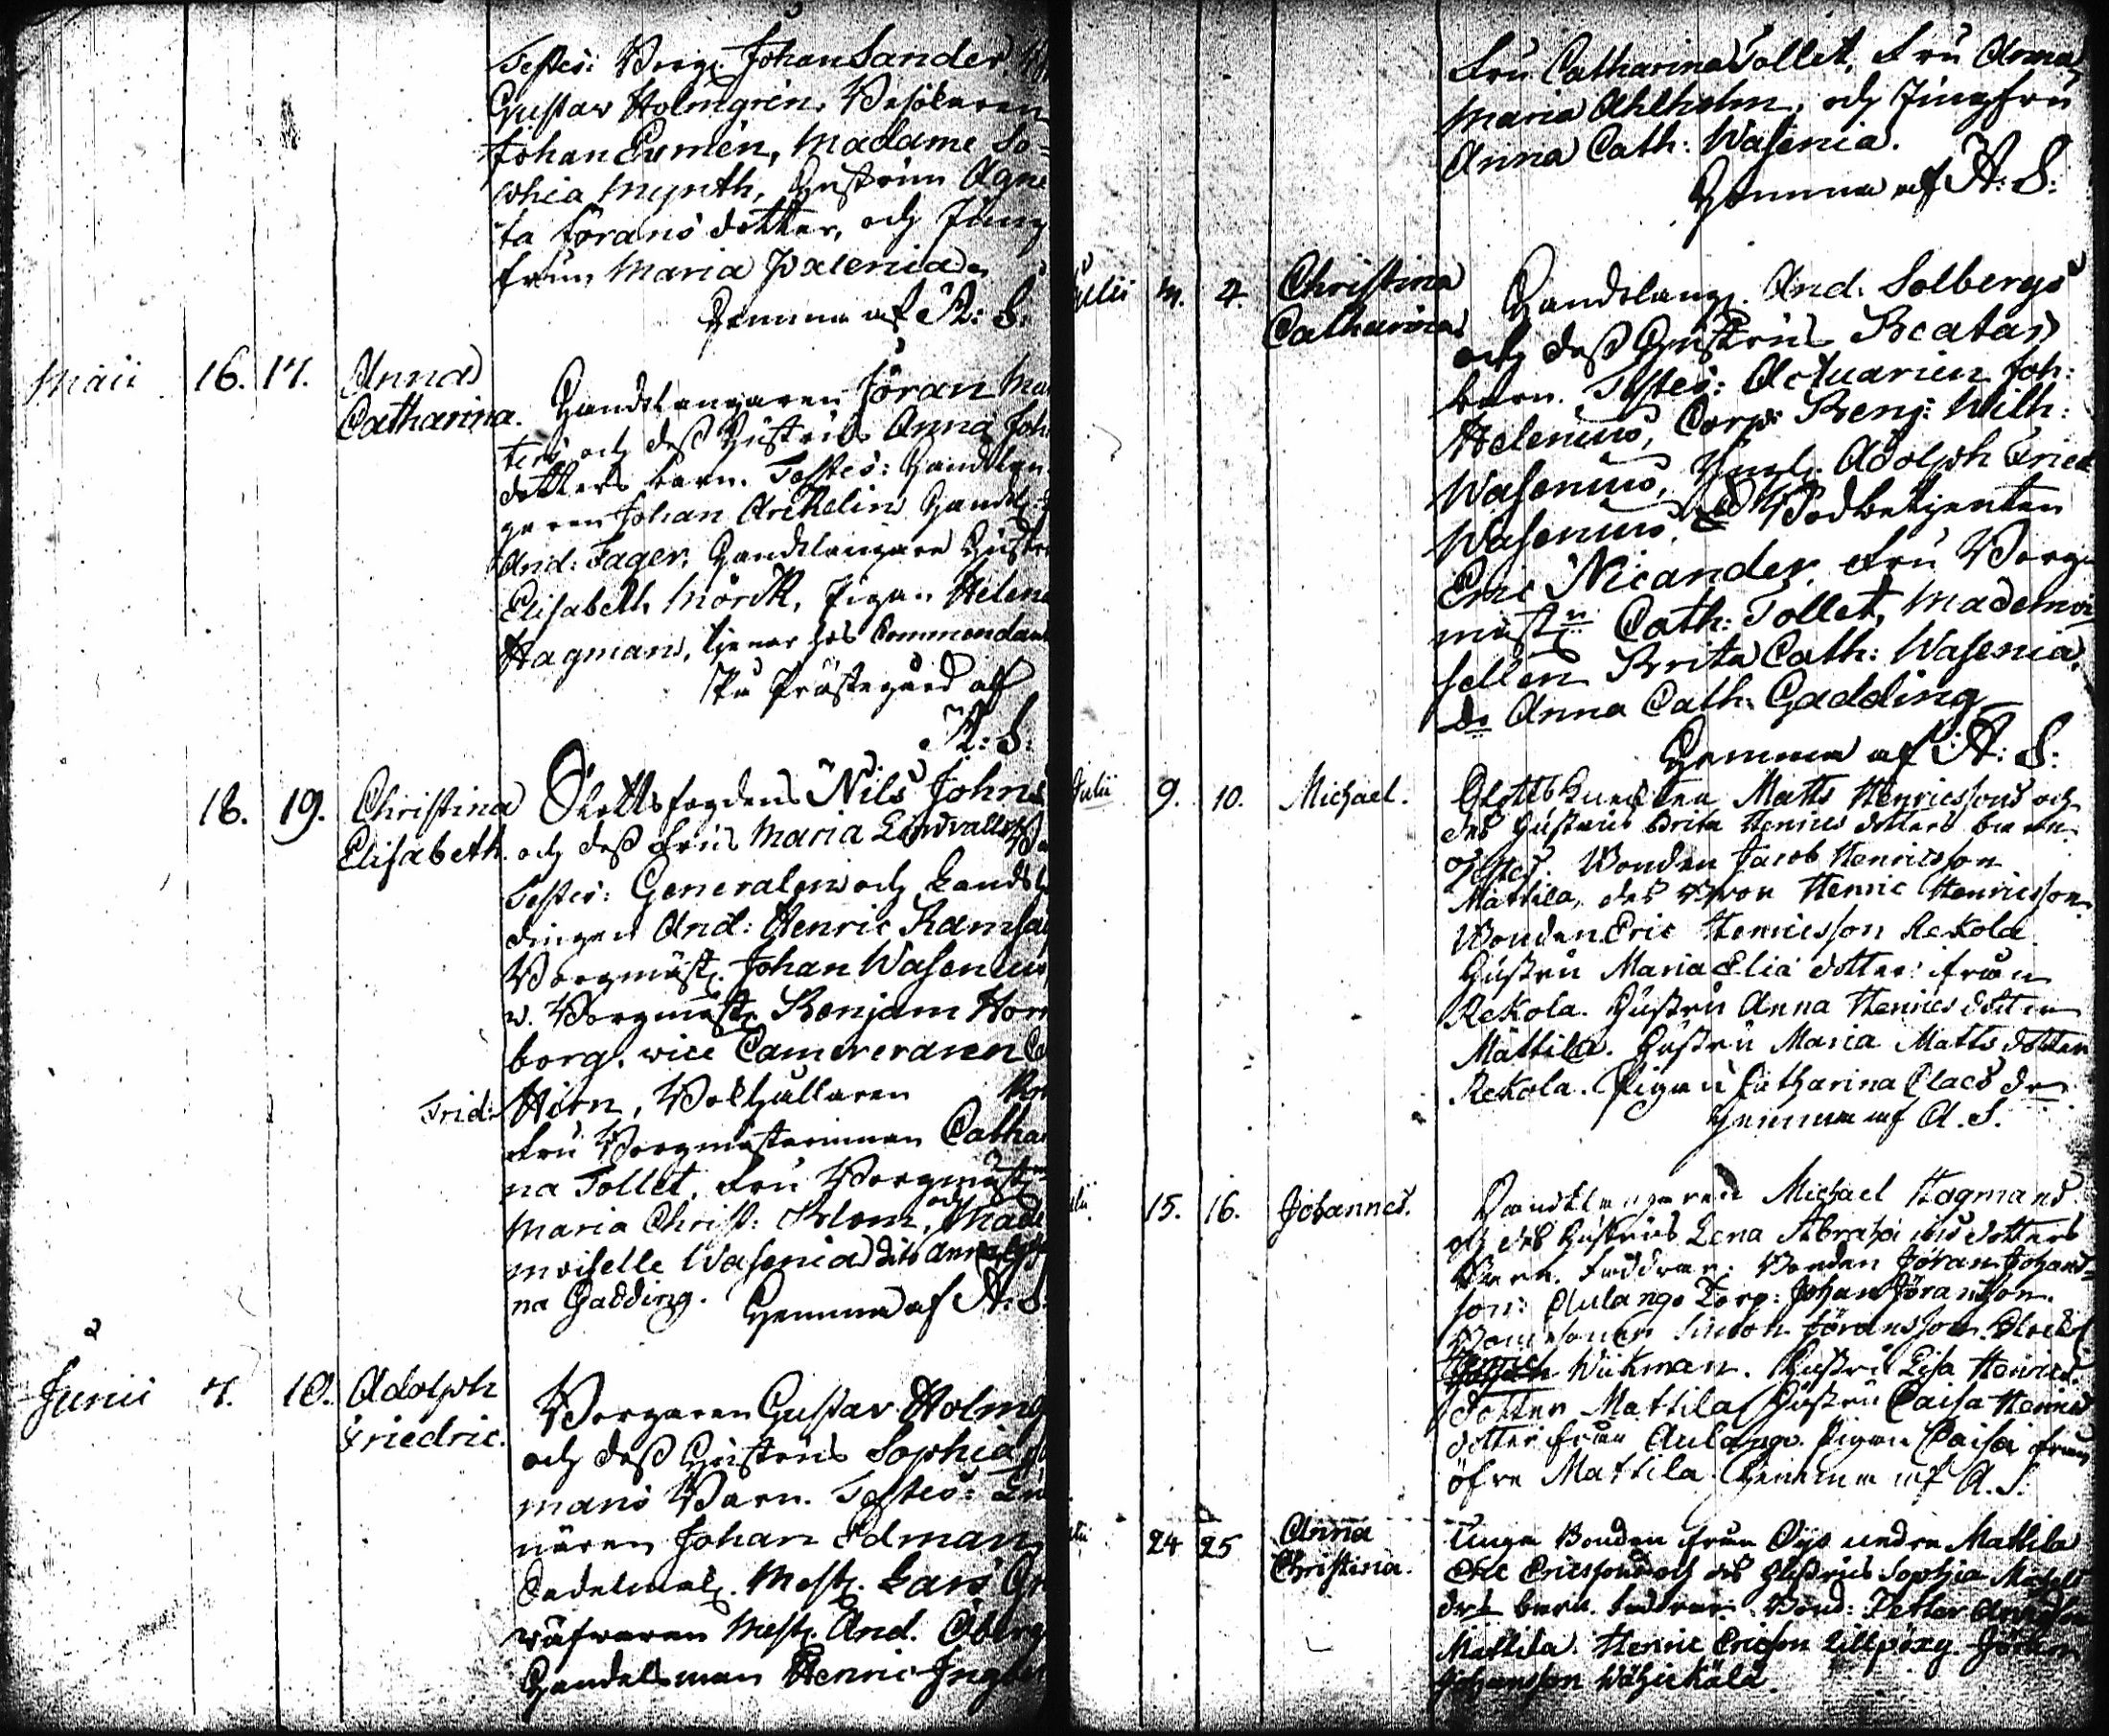 Testes: Borg. Johan Sander,
Gustav Holmgrén, Besökaren
Johan Eumén, Madame So-
phia Mynth, Hustrun Agne
ta Jörans dotter, och Jung
frun Maria Palenia.
Hemma af A: S:
Maii 16. 17. Anna Catharina.
Handtlangaren Jöran
ters och dess Hustrus Anna Joh
dotters barn. Testes: Handtlan
garen Johan Archelin Handtl:
And: Fager, Handtlangare Hustr
Elisabeth Mörck, Pigan Helena
Hagman, tjenar hos Commendant
På Prästegård af
A: S:
18. 19. Christina Elisabeth.
Slottsfogdens Nils Johns
och dess Frus Maria Lindvalls
Testes: Generalen och Landshö
dingen And: Henric Ramsay
Borgmäst. Johan Wasenius
v. Borgmäst. Benjam Horn
borg, vice Camereraren
Frid: Hörn, Bokhållaren
Fru Borgmästerinnan Catha
na Tollet, Fru Borgmäst
Maria Christ: Blom, och Made
moiselle Wasenia dito Anna
na Gadding. Hemma af A: S:
Junii 7. 10. Adolph Friedric.
Borgaren Gustav Holmg
och dess Hustrus Sophia
mans Barn. Testes:
nären Johan Edman
Sadelmak. Mest. Lars
wäfvaren Mest. And. Öberg
Handelsman Henric
Fru Catharina Tollet, Fru Anna
Maria Ahlholm, och Jungfru
Anna Cath: Wasenia.
Hemma af A: S:
Julii 4. Christina Catharina
Handtlang. And: Solbergs
och dess Hustrus Beatas
barn. Testes: Actuarien Joh:
Helenius, Corp: Benj: Wilh:
Wasenius, Yngl. Adolph Fried
Wasenius, Bodbetjenten
Eric Nicander, Fru Borg
mäst:n Cath: Tollet, Mademoi
sellen Brita Cath: Wasenia,
do Anna Cath: Gadding
Hemma af A: S:
Julii 9. 10. Michael.
Slottsknekten Matts Henricssons och
des Hustrus Brita Henrics dotters barn
Testes. Bonden Jacob Henricsson
Mattila, des Bror Henric Henricsson.
Bonden Eric Henricsson Rekola.
Hustru Maria Elia dotter ifrån
Rekola. Hustru Anna Henrics dotter
Mattila. Hustru Maria Matts dotter
Rekola. Pigan Catharina Claes dr
Hemma af A. S.
15. 16. Johannes.
Handtlangaren Michael Hagmans
och des Hustrus Lena Abrahams dotters
Barn. Faddrar: Bonden Jöran Johans-
son: Aulango Torp: Johan Jöransson.
Bondesonen Simon Jöransson.
Henric Wickman. Hustru Lisa Henrics
dotter Mattila Hustru Caisa Henrics
dotter från Aulango. Pigan Caisa från
öfre Mattila. Hemma af A. S.
24 25 Anna Christina.
Unga Bonden från Öijs nedre Mattila
Ericssons och des Hustrus Sophia Matts
drs barn. Faddrar. Bond: Petter
Mattila. Henric Ericsson Lillpörg. Jöran
Johansson